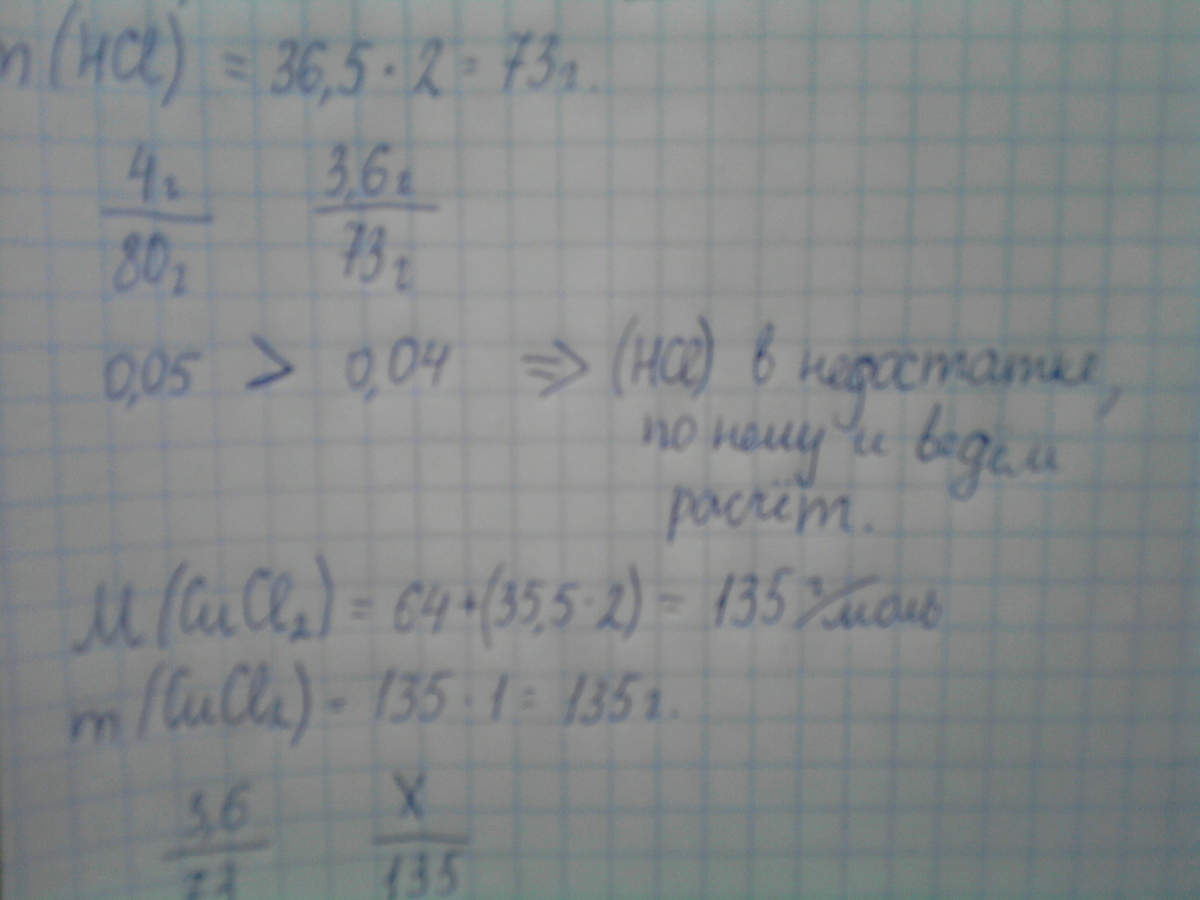 m(HCl) = 36,5 · 2 = 73г.
4г 3,6г
80г 73г
0,05 > 0,04 ⇒ (HCl) в недостатке,
по нему и ведём
расчёт.
M(CuCl₂) = 64+(35,5·2) = 135 г/моль
m(CuCl₂) = 135 · 1 = 135г.
3,6 X
73 135